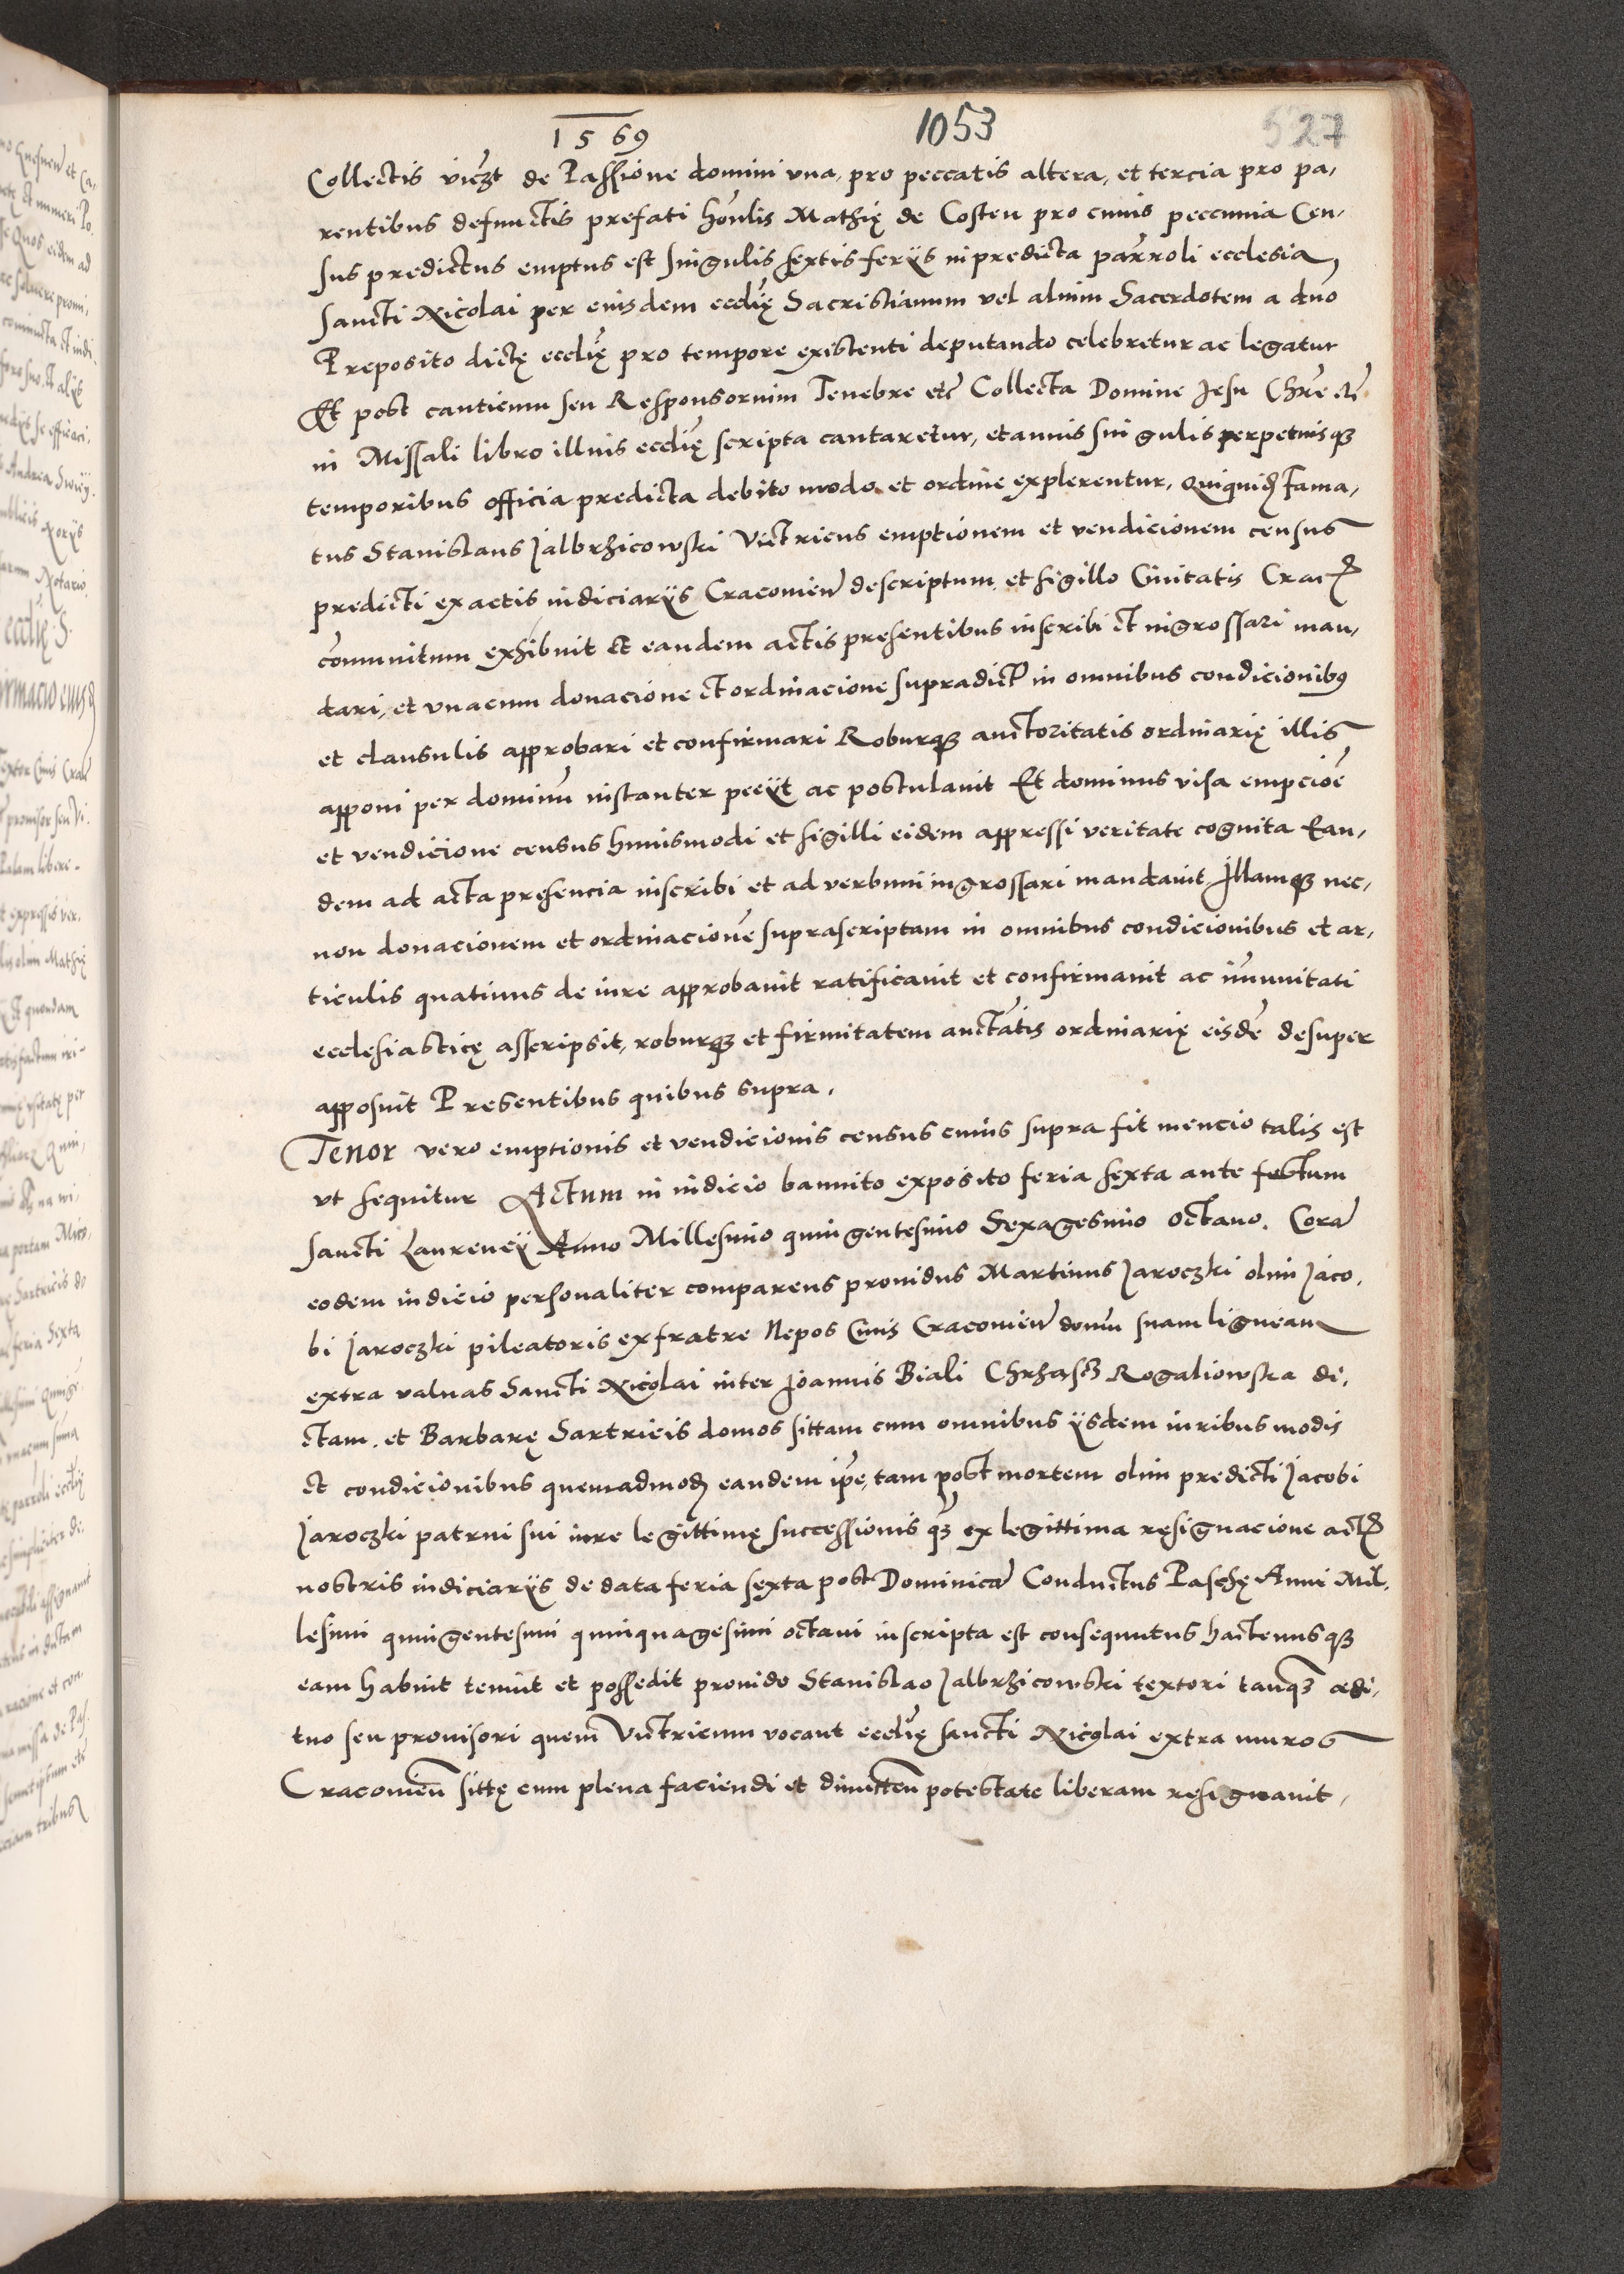 1569
1053
527
Collectis viczt de Passione domini vna, pro peccatis altera, et tercia pro pa,
rentibus defunctis prefati honlis Mathię de Costen pro cuius peccunia Cen,
sus predictus emptus est singulis sextis ferijs in predicta parroli ecclesia,
sancti Nicolai per eiusdem eccłię Sacristianum vel alium Sacerdotem a dno
Preposito dictę eccłię pro tempore existenti deputando celebretur ac legatur
Et post canticum seu Responsorium Tenebre etc Collecta Domine Jesu Chre etc
in Missali libro illius eccłię scripta cantaretur, et annis singulis perpetuisq3
temporibus officia predicta debito modo et ordine explerentur, Quiquid Fama,
tus Stanislaus Jalbrzicowski Victricus emptionem et vendicionem census
predicti ex actis iudiciarijs Cracouien descriptum et sigillo Ciuitatis Crac
comunitum exhibuit et eandem actis presentibus inscribi et ingrossari man,
dari, et vnacum donacione et ordinacione supradict in omnibus condicionibus
et clausulis approbari et confirmari Roburq3 auctoritatis ordinarię illis
apponi per dominum instanter peeijt ac postulauit Et dominus visa empcioe
et vendicione census huiusmodi et sigilli eidem appressi veritate cognita Ean,
dem ad acta presencia inscribi et ad verbum ingrossari mandauit Illamq3 nec,
non donacionem et ordinacione suprascriptam in omnibus condicionibus et ar,
ticulis quatinus de iure approbauit ratificauit et confirmauit ac imunitati
ecclesiasticę asscripsit, roburq3 et firmitatem auctatis ordinarię eisde desuper
apposuit Presentibus quibus supra.
Tenor vero emptionis et vendicionis census cuius supra fit mencio talis est
vt sequitur Actum in iudicio bannito exposito feria sexta ante festum
sancti Laurencij Anno Millesimo quingentesimo Sexagesimo Octauo. Cora
eodem iudicio personaliter comparens prouidus Martinus Jaroczki olim Jaco,
bi Jaroczki pileatoris exfratre Nepos Ciuis Cracouien domu suam ligneam
extra valuas Sancti Nicolai inter Joannis Biali Chrząsc3 Rogaliowska di,
ctam, et Barbarę Sartricis domos sittam cum omnibus ijsdem iuribus modis
et condicionibus quemadmod eandem ipse, tam post mortem olim predicti Jacobi
Jaroczki patrui sui iure legittimę successionis q3 ex legittima resignacione act
nostris iudiciarijs de data feria sexta post Dominica Conductus Paschę Anni Mil,
lesimi quingentesimi quinquagesimi octaui inscripta est consequutus hactenusq3
eam habuit tenuit et possedit prouido Stanislao Jalbrzicowski textori tanq3 ædi,
tuo seu prouisori quem Victricum vocant eccłię sancti Nicolai extra muros
Cracouien sittę cum plena faciendi et dimitten potestate liberam resignauit,